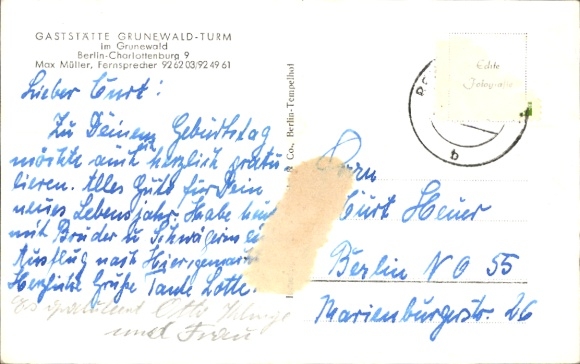 GASTSTÄTTE GRUNEWALD-TURM
im Grunewald
Berlin-Charlottenburg 9
Max Müller, Fernsprecher 92 62 03/92 49 61
Lieber Curt!
Zu Deinem Geburtstag
möchte auch herzlich gratu
lieren. Alles Gute für Dein
neues Lebensjahr. Habe
mit Bruder u Schwägerin
Ausflug nach Hier, gemacht
Herzliche Grüße Tante Lotte.
Es gratuliert Otto
und Frau
& Co., Berlin-Tempelhof
Echte
Fotografie
b
Herrn
Curt Heuer
Berlin N O 55
Marienburgerstr. 26